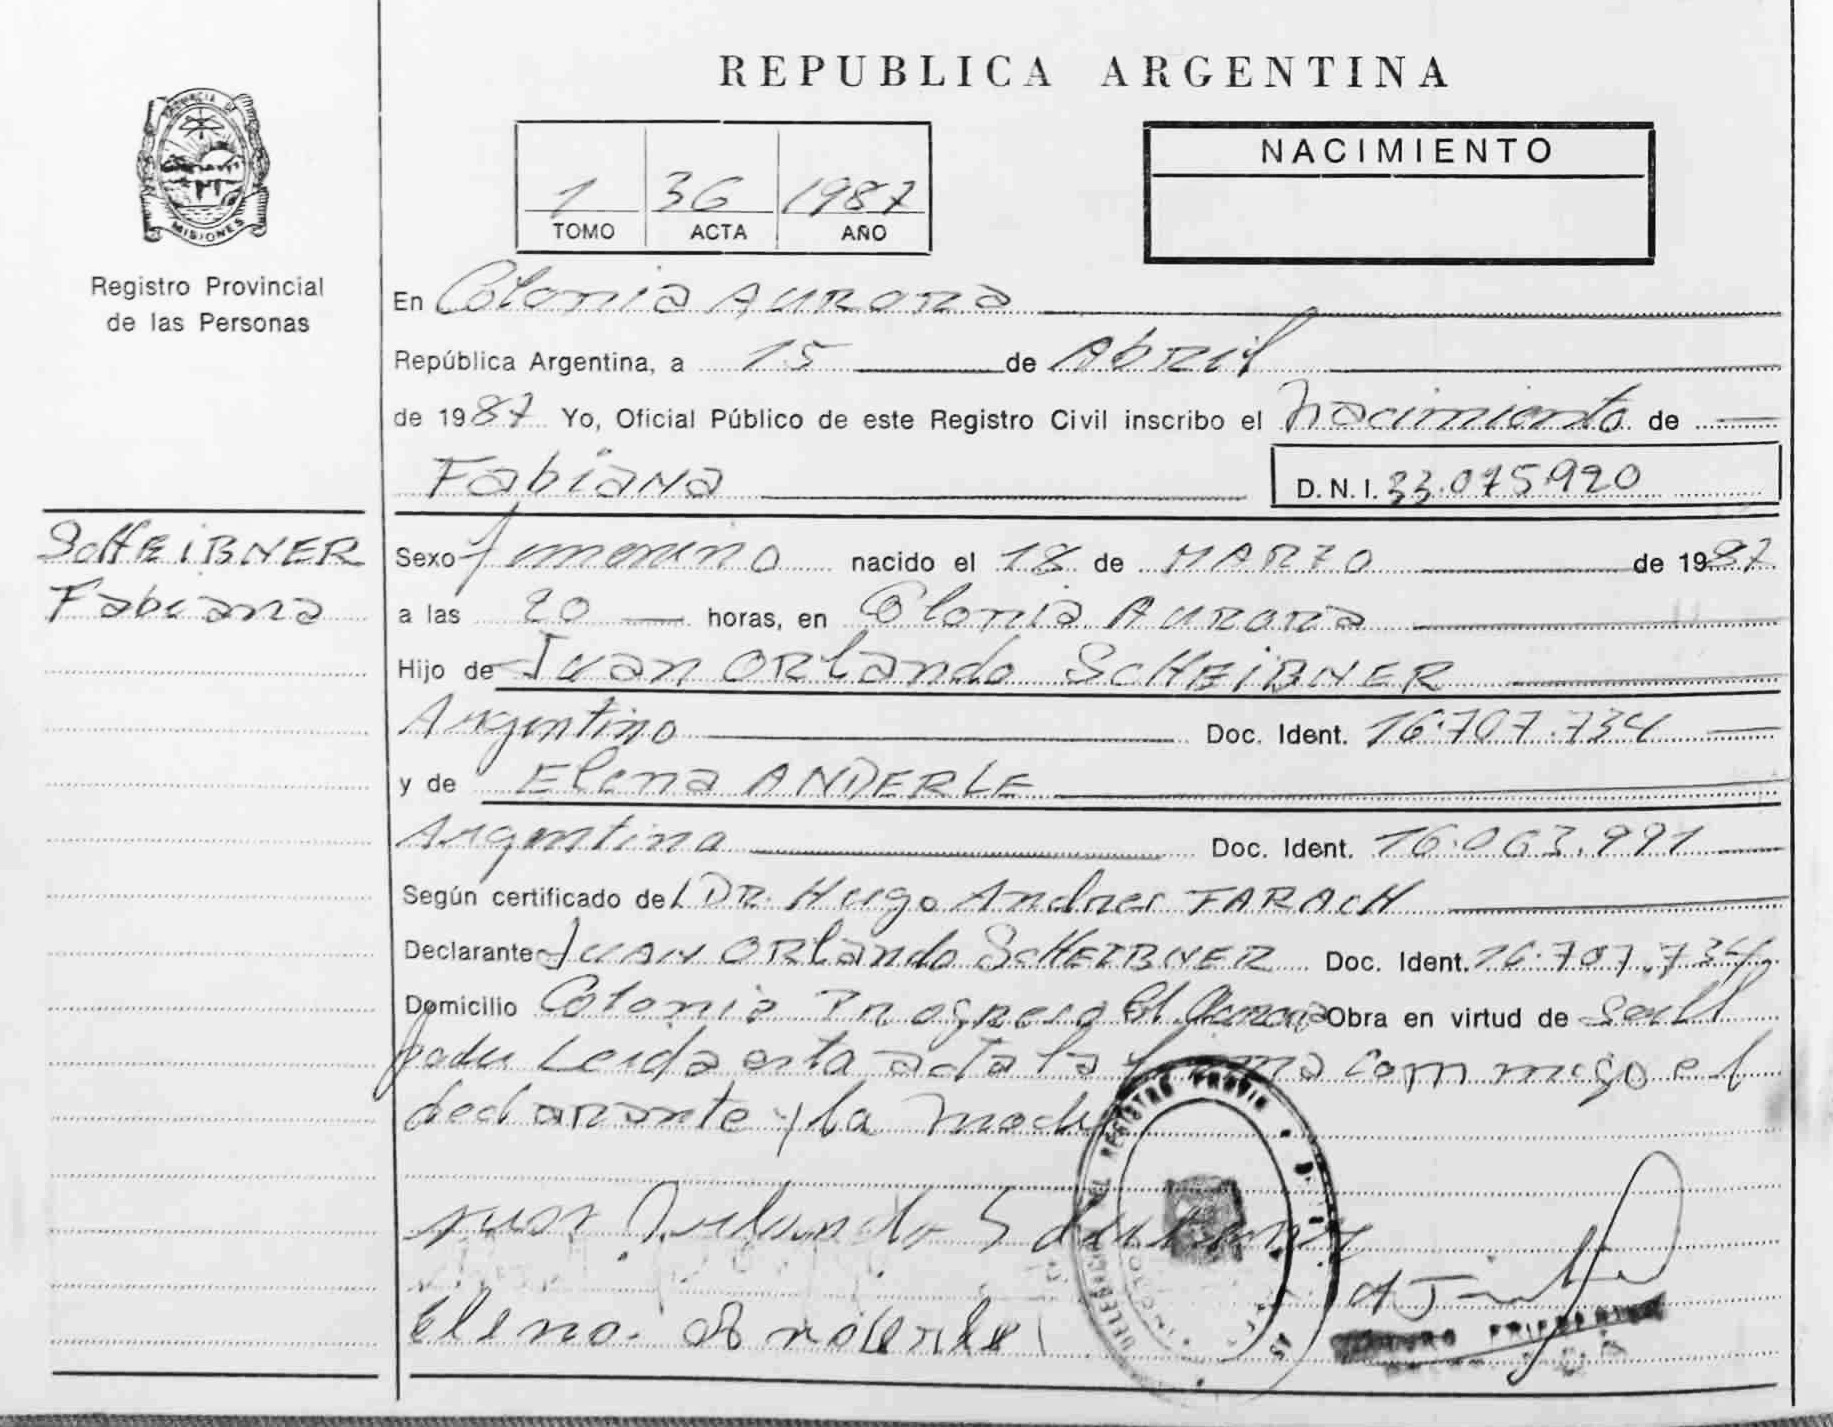 REPUBLICA ARGENTINA
PROVINCIA DE
MISIONES
Registro Provincial
de las Personas
1 36 1987
TOMO ACTA AÑO
NACIMIENTO
En Colonia AURORA
República Argentina, a 15 de Abril
de 1987 Yo, Oficial Público de este Registro Civil inscribo el Nacimiento de
FabiANA D.N.I. 33.075.920
ScHEiBNER
Fabiana
Sexo femenino nacido el 18 de MARZO de 1987
a las 20 horas, en Colonia AURORA
Hijo de Juan ORlando ScHEiBNER
Argentino Doc. Ident. 16.707.734
y de Elena ANDERLE
Argentina Doc. Ident. 16.063.991
Según certificado del DR. Hugo Andres FARACH
Declarante JUAN ORlando ScHEIBNER Doc. Ident. 16.707.734
Domicilio Colonia Progreso El Obra en virtud de ser el
padre Leida esta acta la firma conmigo el
declarante y la madre
DELEGACION DEL REGISTRO PROVIN
Juan Orlando
Elena Anderle